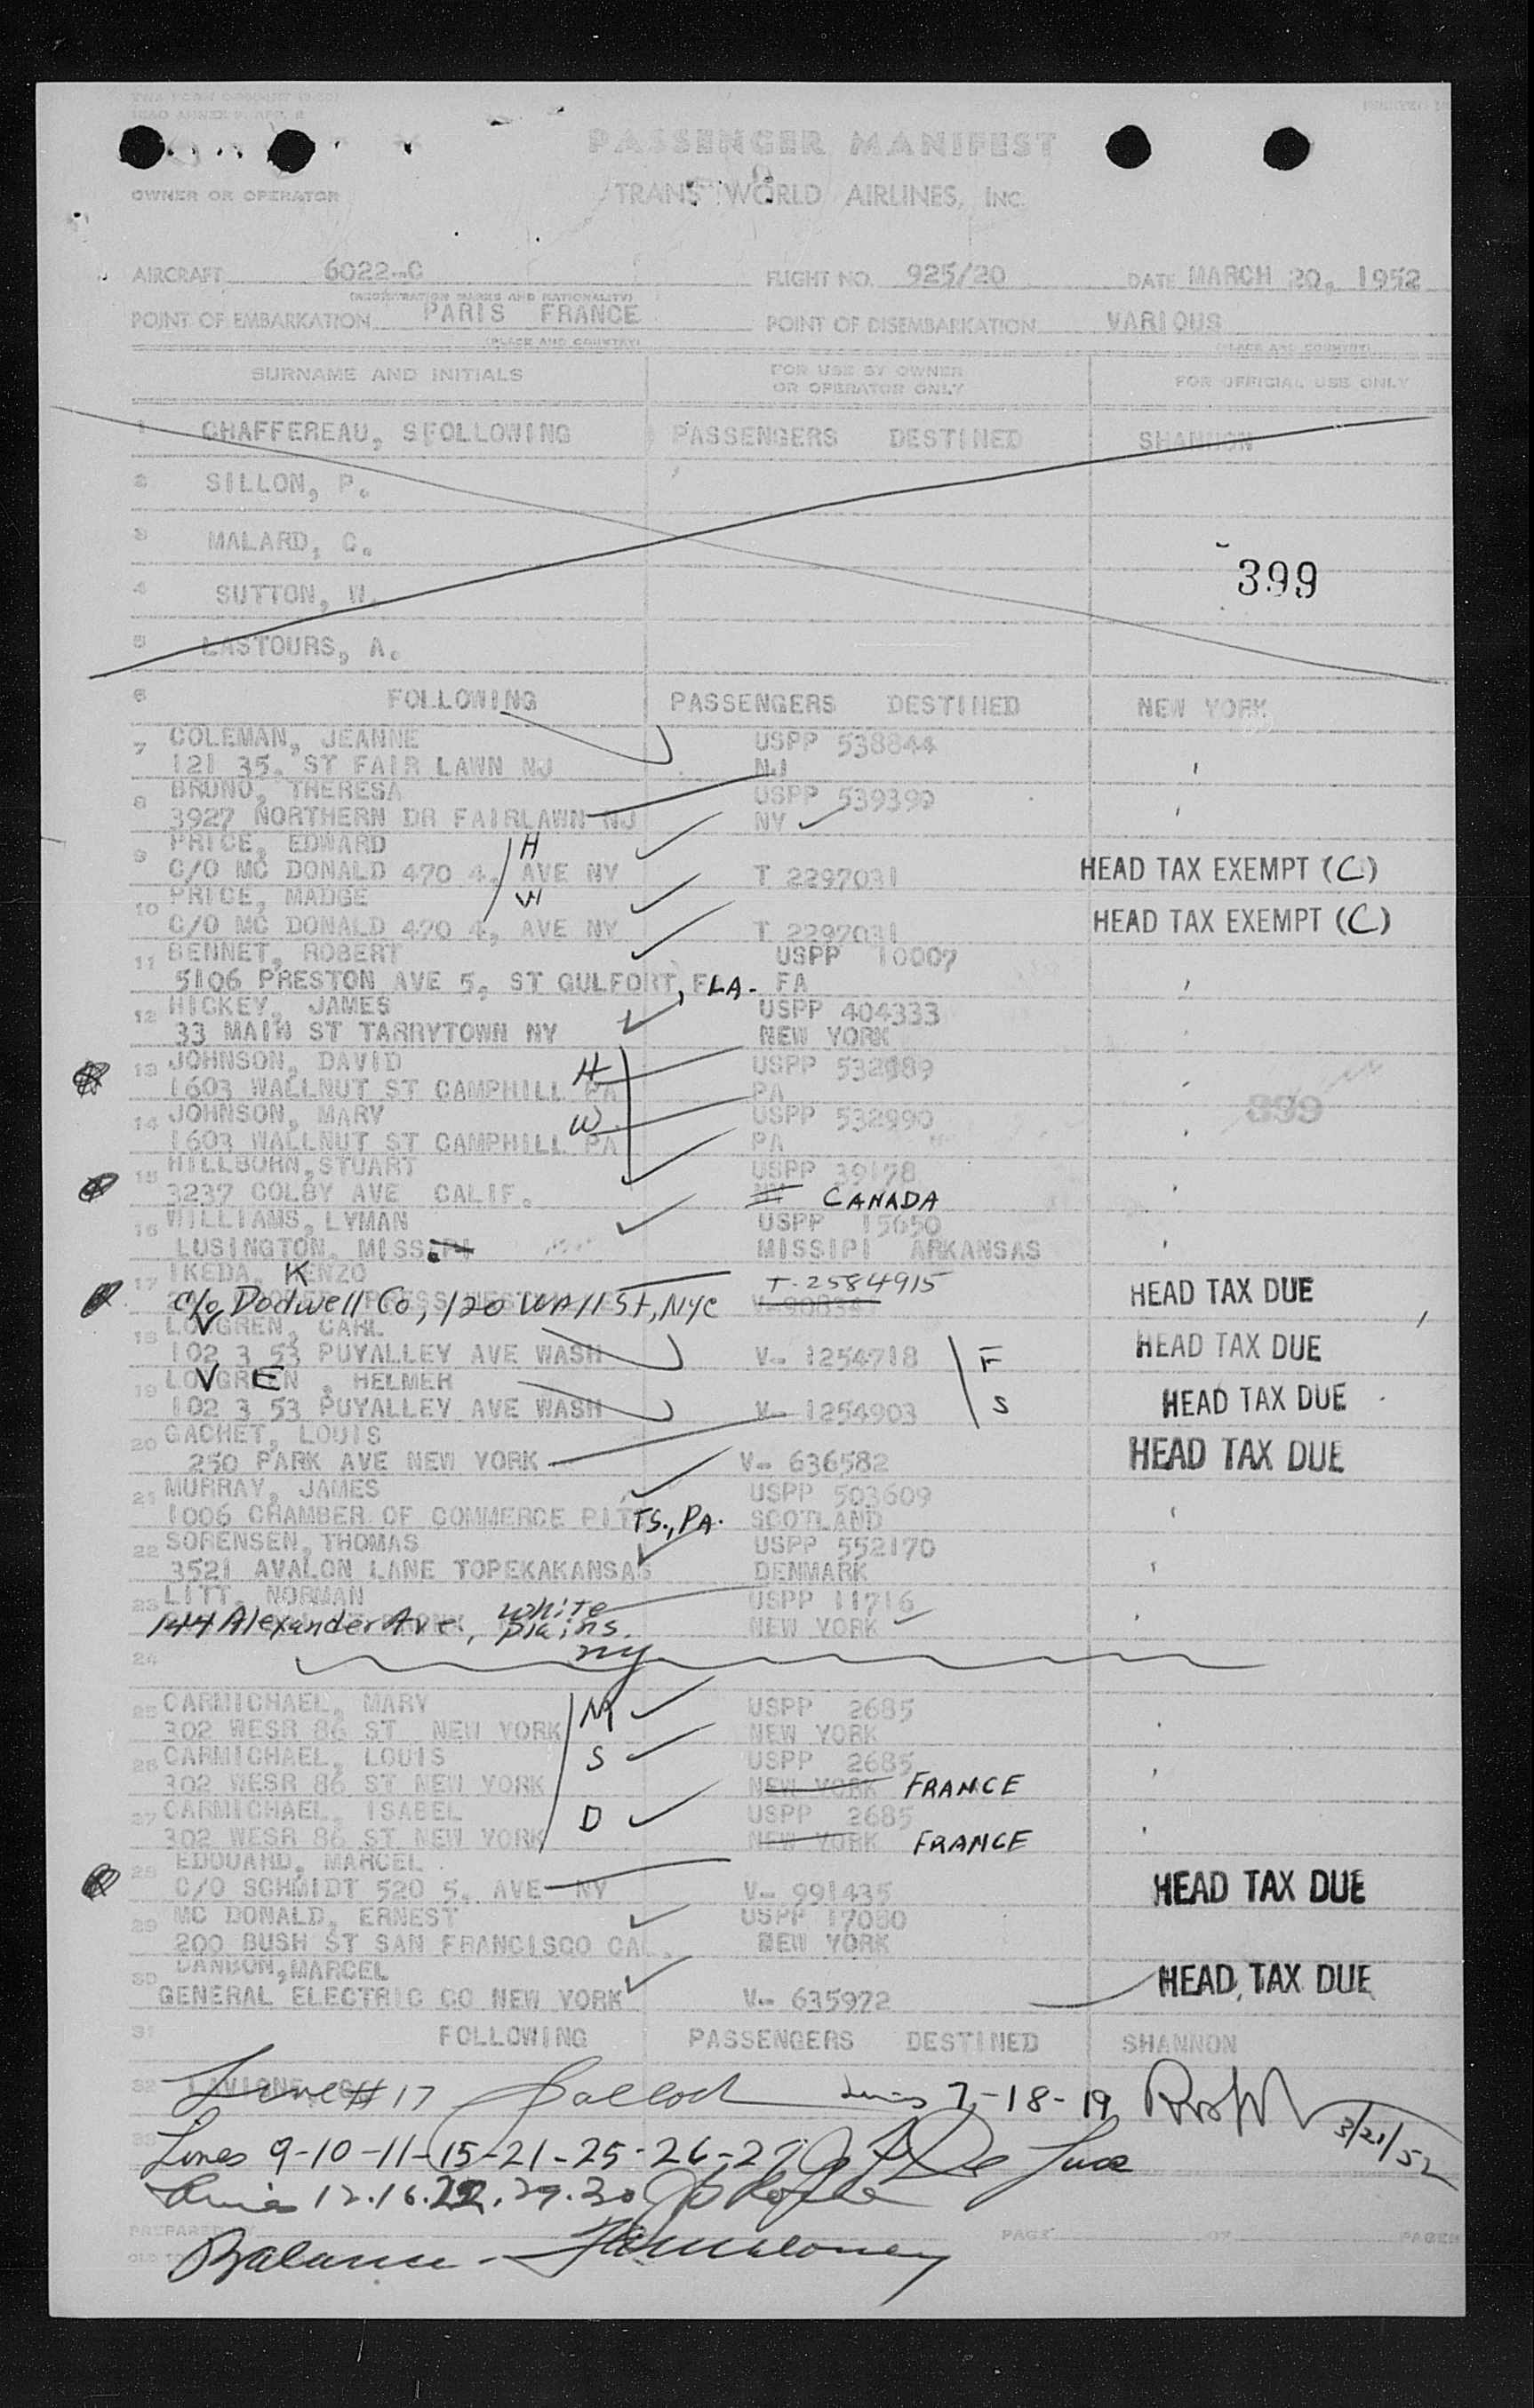 PASSENGER MANIFEST
OWNER OR OPERATOR TRANS WORLD AIRLINES, INC.
AIRCRAFT 6022-C FLIGHT NO. 925/20 DATE MARCH 20, 1952
(REGISTRATION MARKS AND NATIONALITY)
POINT OF EMBARKATION PARIS FRANCE POINT OF DISEMBARKATION VARIOUS
(PLACE AND COUNTRY) (PLACE AND COUNTRY)
SURNAME AND INITIALS FOR USE BY OWNER OR OPERATOR ONLY FOR OFFICIAL USE ONLY
1 CHAFFEREAU, SFOLLOWING PASSENGERS DESTINED SHANNON
2 SILLON, P.
3 MALARD, C.
399
4 SUTTON, W.
5 LASTOURS, A.
6 FOLLOWING PASSENGERS DESTINED NEW YORK
7 COLEMAN, JEANNE USPP 538844
121 35. ST FAIR LAWN NJ NJ
8 BRUNO, THERESA USPP 539390
3927 NORTHERN DR FAIRLAWN NJ NY
9 PRICE, EDWARD H
C/O MC DONALD 470 4. AVE NY T 2297031 HEAD TAX EXEMPT (C)
10 PRICE, MADGE W
C/O MC DONALD 470 4, AVE NY T 2297031 HEAD TAX EXEMPT (C)
11 BENNET, ROBERT USPP 10007
5106 PRESTON AVE 5, ST GULFORT, FLA. FA
12 HICKEY, JAMES USPP 404333
33 MAIN ST TARRYTOWN NY NEW YORK
13 JOHNSON, DAVID H USPP 532989
1603 WALLNUT ST CAMPHILL PA PA
14 JOHNSON, MARY W USPP 532990 399
1603 WALLNUT ST CAMPHILL PA PA
15 HILLBORN,STUART USPP 39178
3237 COLBY AVE CALIF. CANADA
16 WILLIAMS, LYMAN USPP 15650
LUSINGTON, MISSIPI MISSIPI ARKANSAS
17 IKEDA, KENZO T-2584915
c/o Dodwell Co, 120 Wall St, NYC HEAD TAX DUE
18 LOVGREN, CARL
102 3 53 PUYALLEY AVE WASH V- 1254718 F HEAD TAX DUE
19 LOVGREEN, HELMER
102 3 53 PUYALLEY AVE WASH V- 1254903 S HEAD TAX DUE
20 GACHET, LOUIS
250 PARK AVE NEW YORK V- 636582 HEAD TAX DUE
21 MURRAY, JAMES USPP 503609
1006 CHAMBER OF COMMERCE PITTS., PA. SCOTLAND
22 SORENSEN, THOMAS USPP 552170
3521 AVALON LANE TOPEKAKANSAS DENMARK
23 LITT, NORMAN USPP 11716
144 Alexander Ave., White Plains. NY NEW YORK
24
25 CARMICHAEL, MARY M USPP 2685
302 WESR 86 ST NEW YORK NEW YORK
26 CARMICHAEL, LOUIS S USPP 2685
302 WESR 86 ST NEW YORK NEW YORK FRANCE
27 CARMICHAEL, ISABEL D USPP 2685
302 WESR 86 ST NEW YORK NEW YORK FRANCE
28 EDOUARD, MARCEL
C/O SCHMIDT 520 5. AVE NY V- 991435 HEAD TAX DUE
29 MC DONALD, ERNEST USPP 17080
200 BUSH ST SAN FRANCISCO CAL. NEW YORK
30 DANBON,MARCEL
GENERAL ELECTRIC CO NEW YORK V- 635972 HEAD TAX DUE
31 FOLLOWING PASSENGERS DESTINED SHANNON
32 Line # 17 Lines 7-18-19 3/21/52
33 Lines 9-10-11-15-21-25-26-27 De Luca
Lines 12.16.22.29.30
PREPARED BY PAGE OF PAGES
Balance -